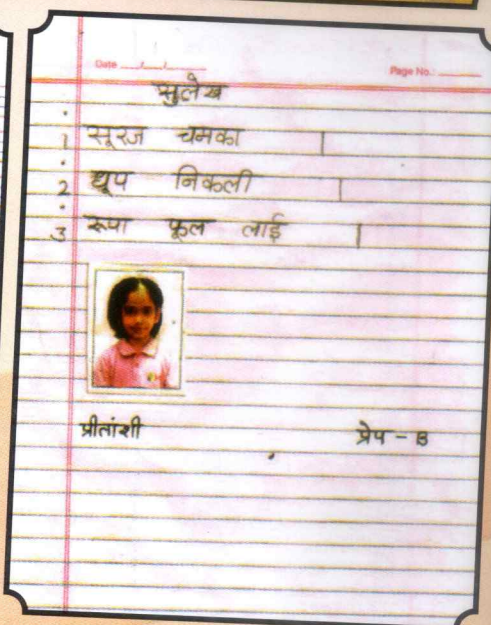 Date __/__/__ Page No.: ______
सुलेख
1 सूरज चमका |
2 धूप निकली |
3 रूपा फूल लाई |
प्रीतांशी प्रेप - B